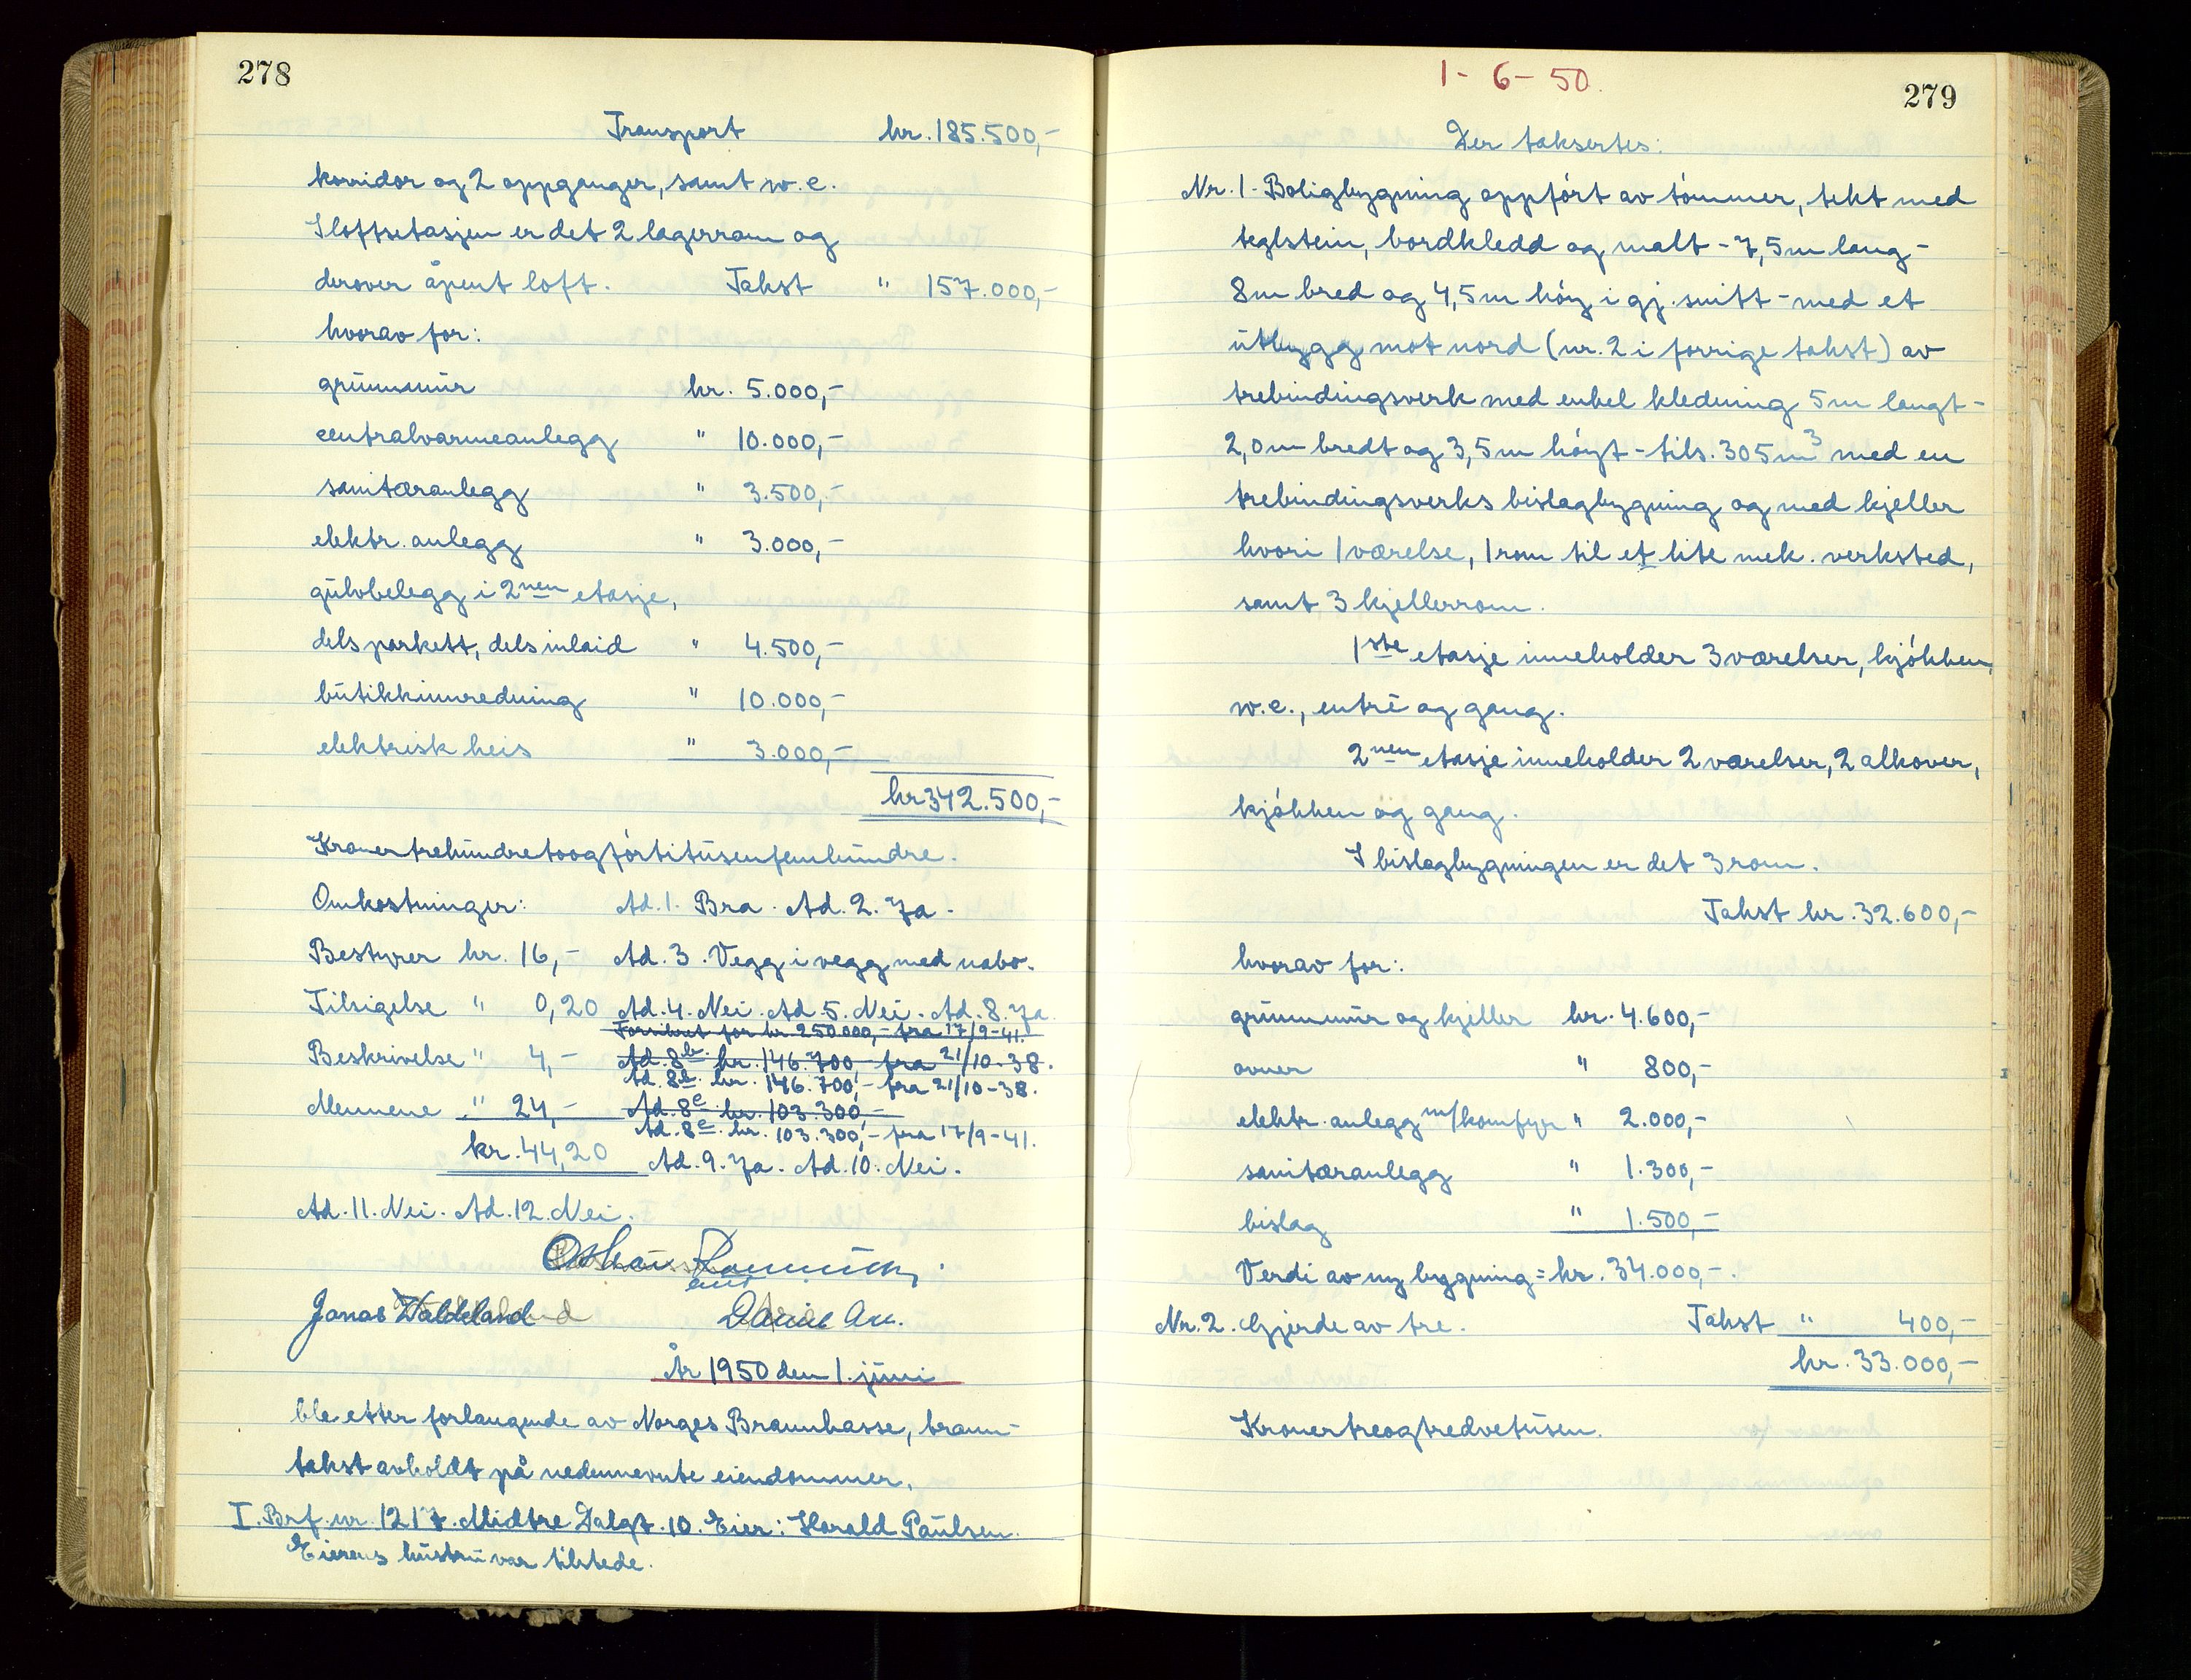 278
Transport kr. 185.500,-
korridor og 2 oppganger, samt w.c.
I loftsetasjen er det 2 lagerrom og
derover åpent loft. Takst " 157.000,-
hvorav for:
grunnmur kr. 5.000,-
centralvarmeanlegg " 10.000,-
sanitæranlegg " 3.500,-
elektr. anlegg " 3.000,-
gulvbelegg i 2nen etasje,
dels parkett, dels inlaid " 4.500,-
butikkinnredning " 10.000,-
elektrisk heis " 3.000,-
kr 342.500,-
Kronertrehundretoogførtitusenfemhundre.
Omkostninger: Ad. 1. Bra. Ad. 2. Ja.
Bestyrer kr. 16,- Ad. 3. Vegg i vegg med nabo.
Tilsigelse " 0,20 Ad. 4. Nei. Ad. 5. Nei. Ad. 8. Ja.
Forsikret for kr 250.000,- fra 17/9-41.
Beskrivelse " 4,- Ad. 8b. kr. 146.700,- fra 21/10-38.
Ad. 8b. kr. 146.700,- fra 21/10-38.
Mennene " 24,- Ad. 8c. kr. 103.300,-
Ad. 8c. kr. 103.300,- fra 17/9-41.
kr. 44,20 Ad. 9. Ja. Ad. 10. Nei.
Ad. 11. Nei. Ad. 12. Nei.
Jonas Waldeland
År 1950 den 1. juni
ble etter forlangende av Norges Brannkasse, brann-
takst avholdt på nedennevnte eiendommer.
I. Brf. nr. 1217. Midtre Dalgt. 10. Eier: Harald Paulsen.
Eierens hustru var tilstede.
1-6-50.
279
Der taksertes:
Nr. 1 - Boligbygning oppført av tømmer, tekt med
teglstein, bordkledd og malt - 7,5 m lang -
8 m bred og 4,5 m høy i gj. snitt - med et
utbygg mot nord (nr. 2 i forrige takst) av
trebindingsverk med enkel kledning 5 m langt -
2,0 m bredt og 3,5 m høyt - tils. 305 m3 med en
trebindingsverks bislagbygning og med kjeller
hvori 1 værelse, 1 rom til et lite mek. verksted,
samt 3 kjellerrom.
1ste etasje inneholder 3 værelser, kjøkken,
w.c., entré og gang.
2nen etasje inneholder 2 værelser, 2 alkover,
kjøkken og gang.
I bislagbygningen er det 3 rom.
Takst kr. 32.600,-
hvorav for:
grunnmur og kjeller kr. 4.600,-
ovner " 800,-
elektr. anlegg m/komfyr " 2.000,-
sanitæranlegg " 1.300,-
bislag " 1.500,-
Verdi av ny bygning = kr. 34.000,-.
Nr. 2. Gjerde av tre. Takst " 400,-
kr. 33.000,-
Kronertreogtredvetusen.